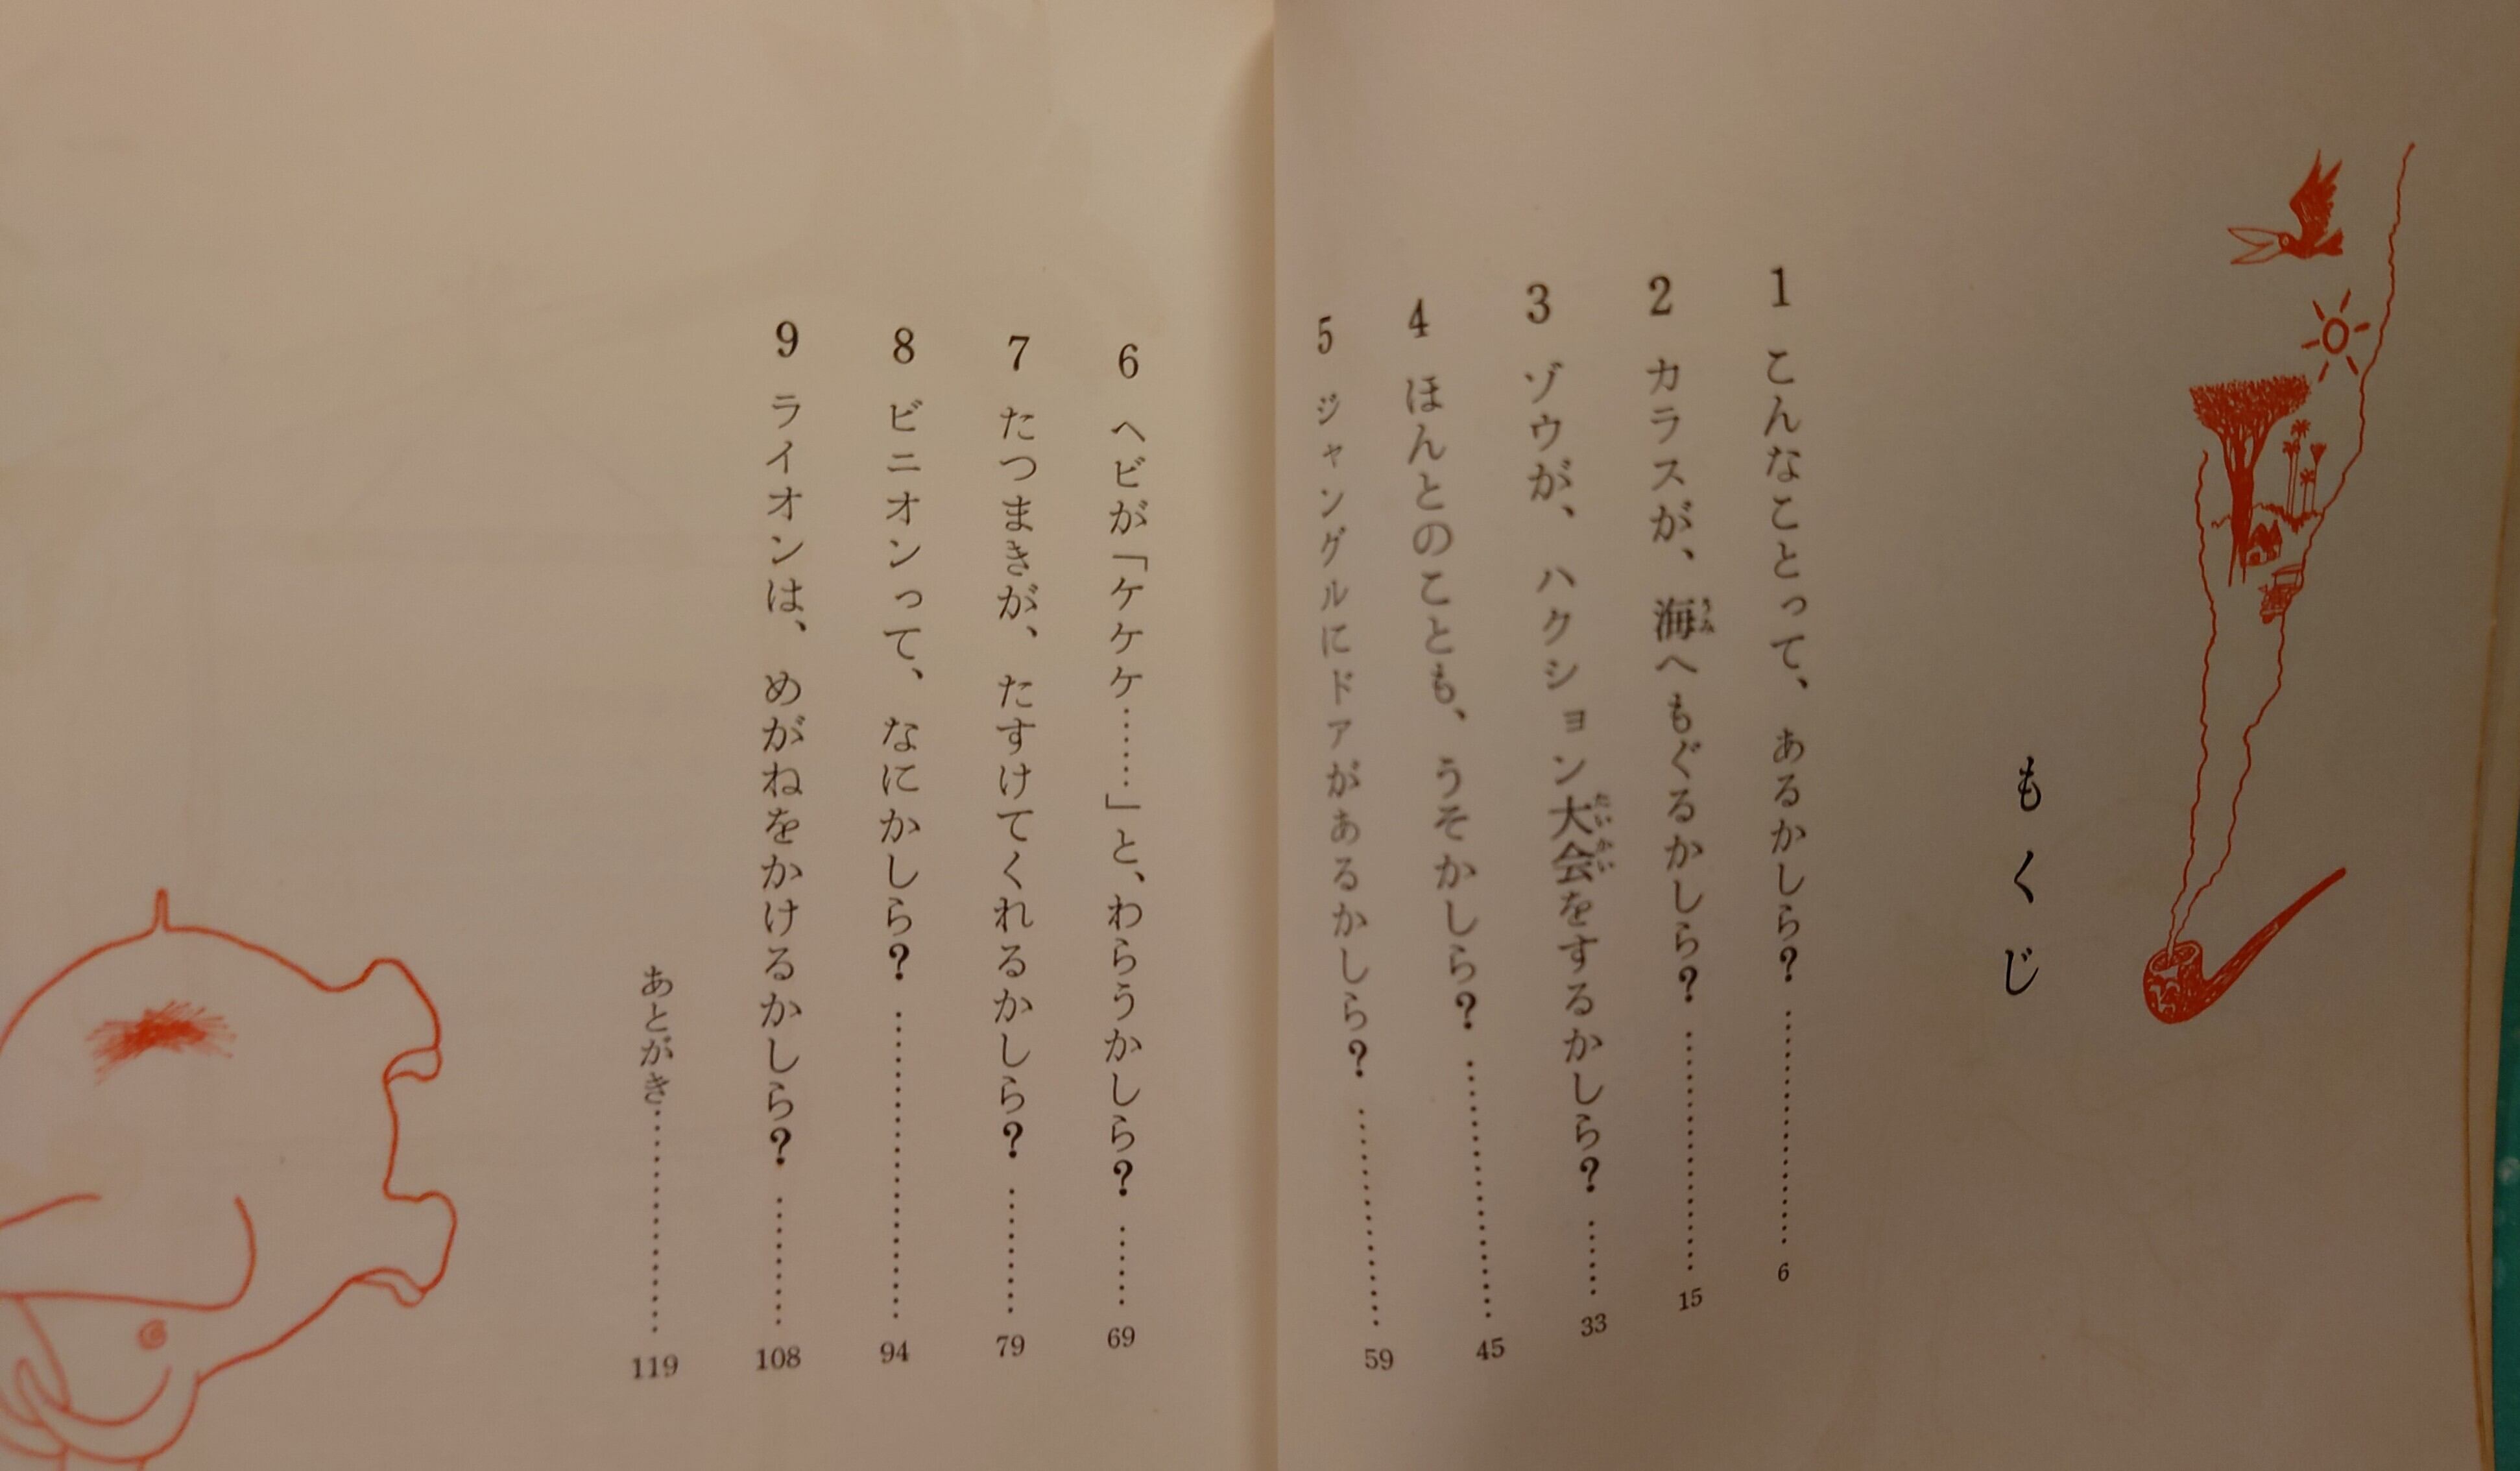 もくじ
1 こんなことって、あるかしら？……………6
2 カラスが、海へもぐるかしら？……………15
3 ゾウが、ハクション大会をするかしら？……33
4 ほんとのことも、うそかしら？……………45
5 ジャングルにドアがあるかしら？……………59
6 ヘビが「ケケケ……」と、わらうかしら？……69
7 たつまきが、たすけてくれるかしら？………79
8 ビニオンって、なにかしら？…………………94
9 ライオンは、めがねをかけるかしら？………108
あとがき……………119